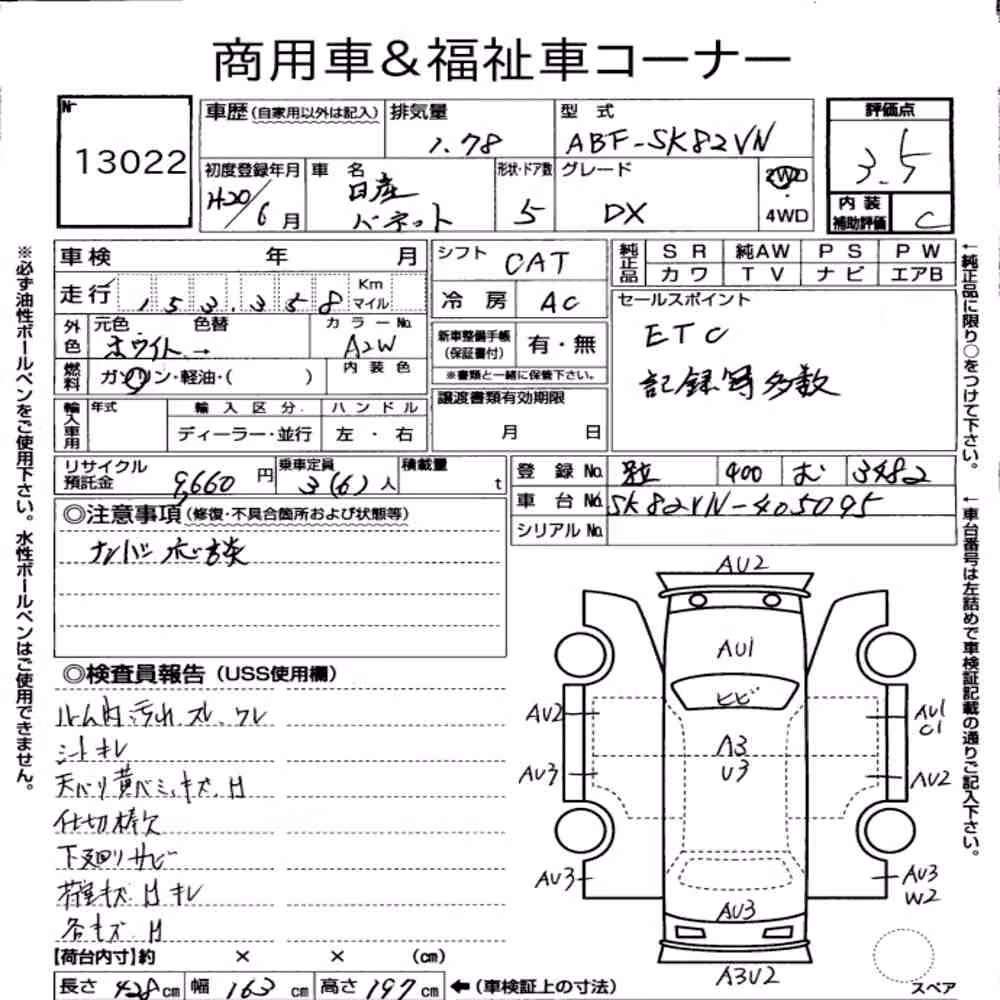 商用車&福祉車コーナー
№ 13022
車歴(自家用以外は記入) 排気量 1.78 型式 ABF-SK82VN
評価点 3.5
初度登録年月 H20/6月 車名 日産 バネット 形状・ドア数 5 グレード DX 2WD 4WD
内装補助評価 C
車検 年 月 シフト CAT
純正品 SR 純AW PS PW
カワ TV ナビ エアB
走行 153,358 Km マイル 冷房 AC
セールスポイント
ETC
記録簿多数
外色 元色 ホワイト → 色替 カラーNo. A2W
新車整備手帳(保証書付) 有・無
※書類と一緒に保管下さい。
燃料 ガソリン・軽油・( ) 内装色
譲渡書類有効期限 月 日
輸入車用 年式 輸入区分 ディーラー・並行 ハンドル 左・右
リサイクル預託金 9,660円 乗車定員 3(6)人 積載量 t
登録No. 400 む 3482
車台No. SK82VN-405095
シリアルNo.
◎注意事項(修復・不具合箇所および状態等)
◎検査員報告(USS使用欄)
ルーム内汚れ スレ ワレ
シートキレ
天バリ黄バミ、キズ、凹
仕切棒欠
下廻りサビ
荷室キズ 凹 キレ
各キズ 凹
AU2
AU1
ヒビ
AU2
AU1
C1
A3
U3
AU3
AU2
AU3
AU3
W2
AU3
A3U2
スペア
【荷台内寸】約 × × (cm)
長さ 428cm 幅 163cm 高さ 197cm ←(車検証上の寸法)
※必ず油性ボールペンをご使用下さい。水性ボールペンはご使用できません。
←純正品に限り○をつけて下さい。
←車台番号は左詰めで車検証記載の通りご記入下さい。